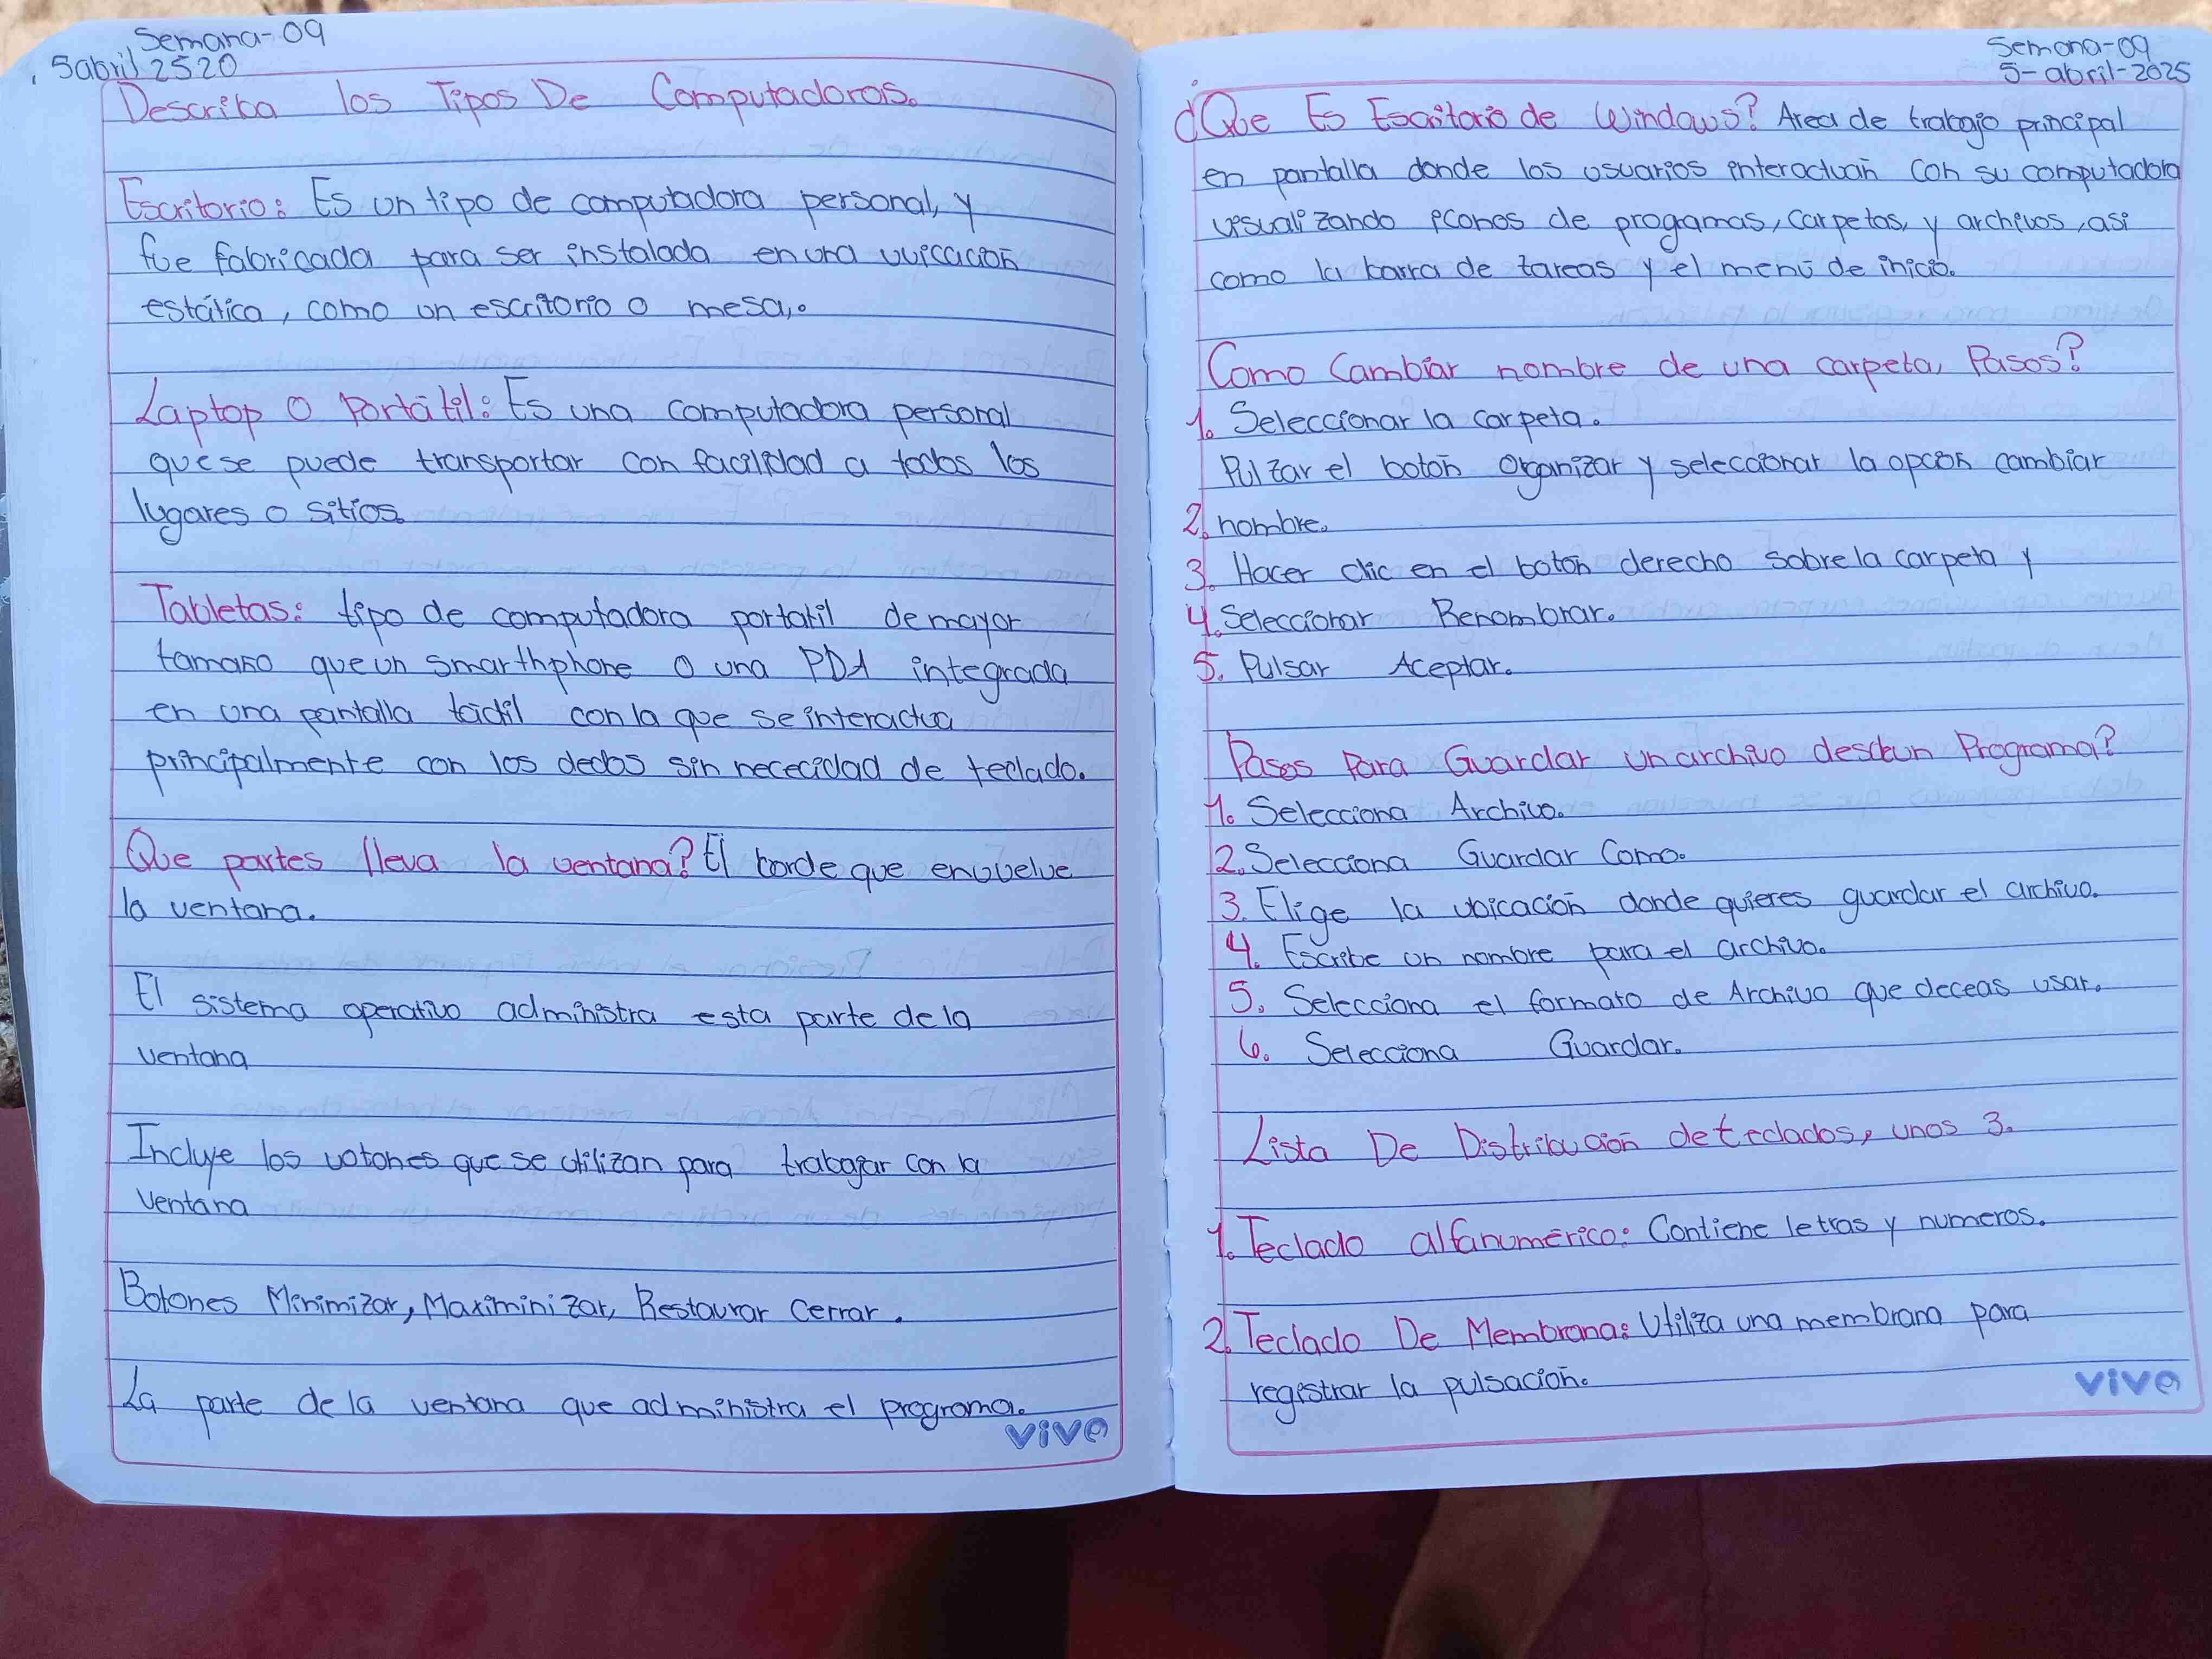 Semana-09
5abril 2520
Describa los Tipos De Computadoras.
Escritorio: Es un tipo de computadora personal, y
fue fabricada para ser instalada en una uvicación
estática, como un escritorio o mesa,.
Laptop O Portátil: Es una computadora personal
que se puede transportar con facilidad a todos los
lugares o sitios.
Tabletas: tipo de computadora portatil de mayor
tamaño que un smarthphone o una PDA integrada
en una pantalla táctil con la que se interactua
principalmente con los dedos sin nececidad de teclado.
Que partes lleva la ventana? El borde que envuelve
la ventana.
El sistema operativo administra esta parte de la
ventana
Incluye los votones que se utilizan para trabajar con la
ventana
Botones Minimizar, Maximinizar, Restaurar Cerrar.
La parte de la ventana que administra el programa.
vivo
Semana-09
5-abril-2025
¿Que Es Escritorio de Windows? Area de trabajo principal
en pantalla donde los usuarios interactuan con su computadora
visualizando iconos de progamas, carpetas, y archivos, asi
como la barra de tareas y el menú de inicio.
Como Cambiar nombre de una carpeta, Pasos?
1. Seleccionar la carpeta.
Pulzar el botón Organizar y seleccionar la opción cambiar
2. nombre.
3. Hacer clic en el botón derecho sobre la carpeta y
4. Seleccionar Renombrar.
5. Pulsar Aceptar.
Pasos Para Guardar un archivo desde un Programa?
1. Selecciona Archivo.
2. Selecciona Guardar Como.
3. Elige la ubicación donde quieres guardar el archivo.
4. Escribe un nombre para el archivo.
5. Selecciona el formato de Archivo que deceas usar.
6. Selecciona Guardar.
Lista De Distribución de teclados, unos 3.
1. Teclado alfanumérico: Contiene letras y numeros.
2. Teclado De Membrana: Utiliza una membrana para
registrar la pulsación.
vivo